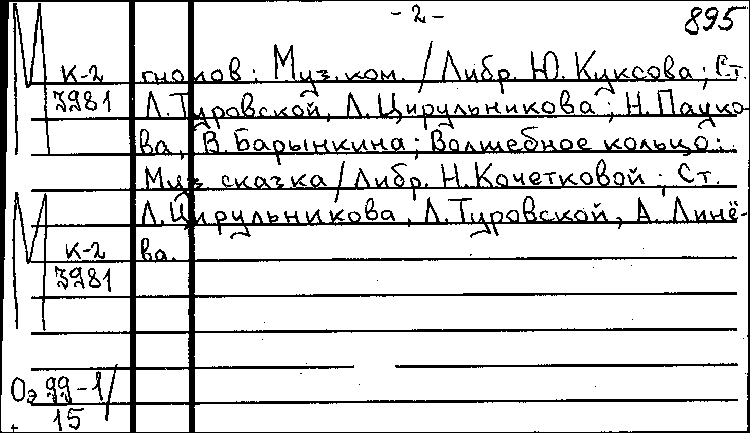 - 2 -
895
М К-2
3981
гномов: Муз. ком. / Либр. Ю. Куксова; Ст.
Л. Туровской, Л. Цирульникова; Н. Пауко-
ва, В. Барынкина; Волшебное кольцо:
Муз сказка / Либр. Н. Кочетковой; Ст.
Л. Цирульникова, Л. Туровской, А. Линё-
ва.
М К-2
3981
Оэ 99-1/
15